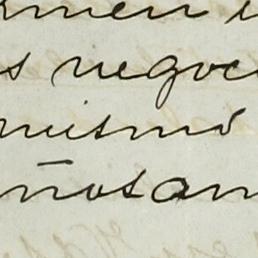 rmen
s negoci
mismo
ñosam